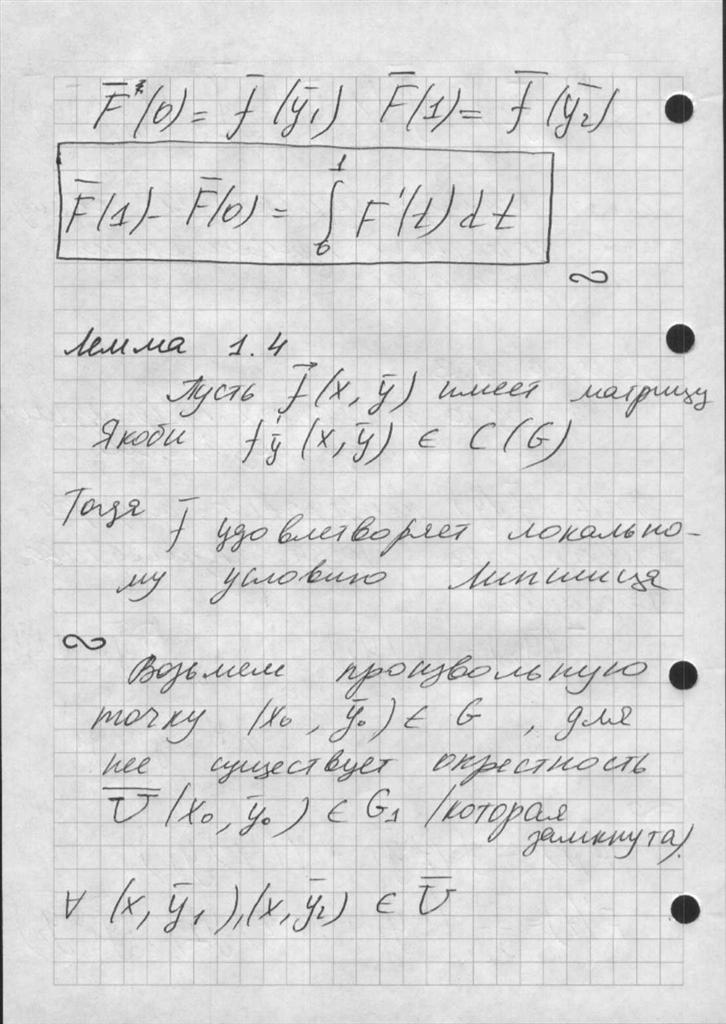 F̄(0) = f̄(ȳ₁) F̄(1) = f̄(ȳ₂)
F̄(1) - F̄(0) = ∫₀¹ F'(t) dt
Лемма 1.4
Пусть f⃗(x, ȳ) имеет матрицу
Якоби f'ȳ (x, ȳ) ∈ C(G)
Тогда f̄ удовлетворяет локально-
му условию Липшица
Возьмем произвольную
точку (x₀, ȳ₀) ∈ G, для
нее существует окрестность
Ū(x₀, ȳ₀) ∈ G₁ (которая
замкнута).
∀ (x, ȳ₁), (x, ȳ₂) ∈ Ū